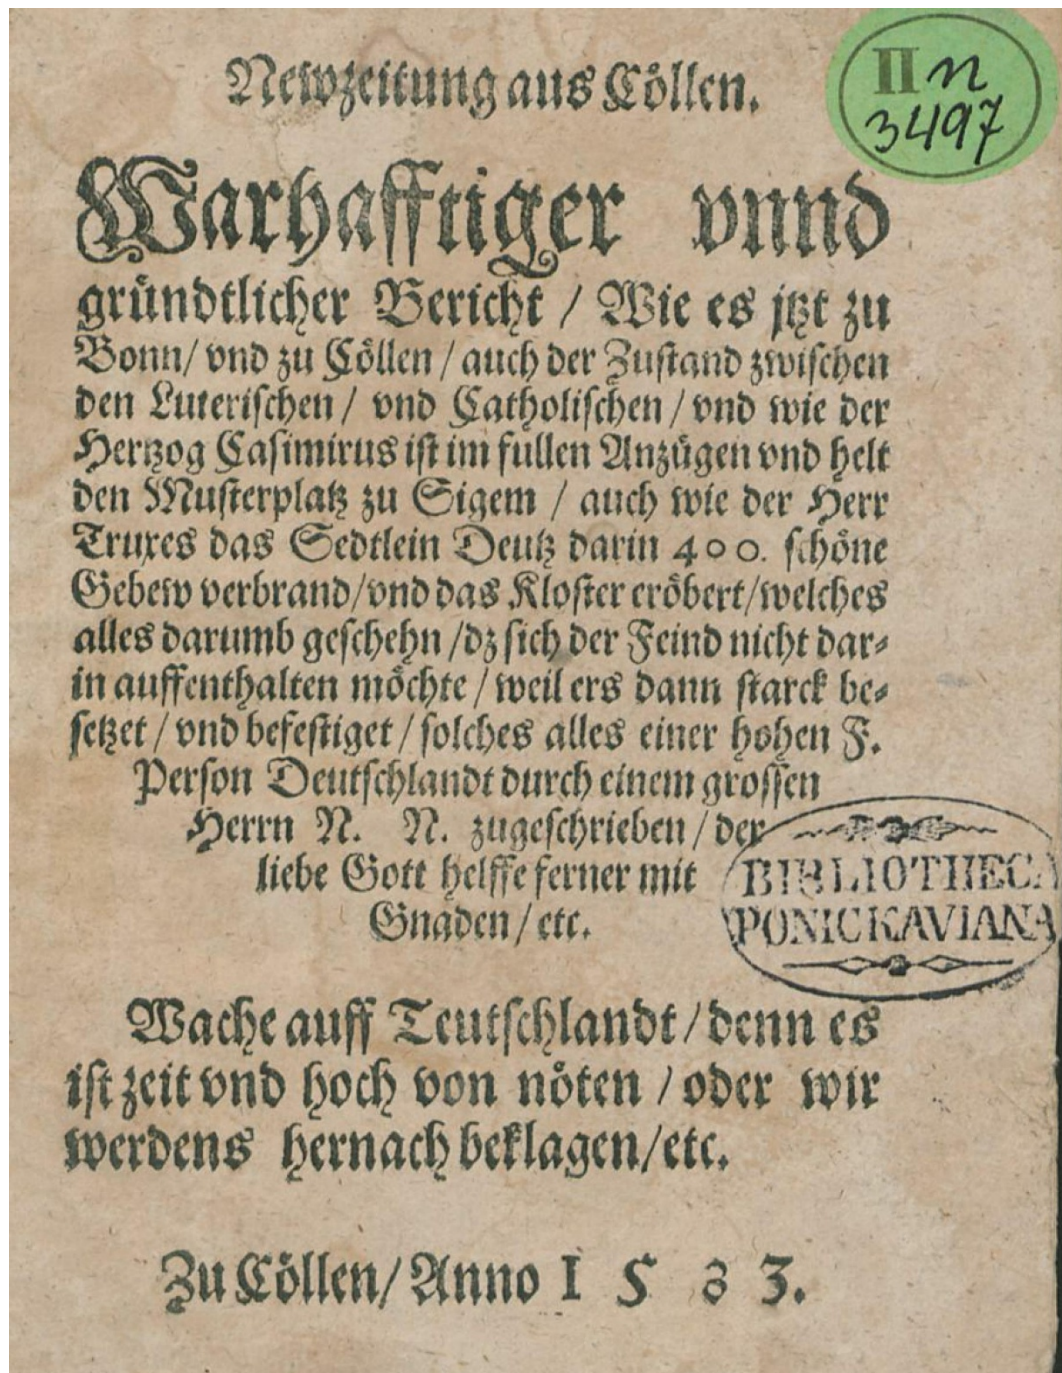 Newzeitung aus Cöllen.
II n
3497
Warhafftiger vnnd
gründtlicher Bericht / Wie es jtzt zu
Bonn / vnd zu Cöllen / auch der Zustand zwischen
den Luterischen / vnd Catholischen / vnd wie der
Hertzog Casimirus ist im fullen Anzügen vnd helt
den Musterplatz zu Sigem / auch wie der Herr
Truxes das Sedtlein Deutz darin 400. schöne
Gebew verbrand / vnd das Kloster eröbert / welches
alles darumb geschehn / dz sich der Feind nicht dar-
in auffenthalten möchte / weil ers dann starck be-
setzet / vnd befestiget / solches alles einer hohen F.
Person Deutschlandt durch einem grossen
Herrn N. N. zugeschrieben / der
liebe Gott helffe ferner mit
Gnaden / etc.
BIBLIOTHECA
PONICKAVIANA
Wache auff Teutschlandt / denn es
ist zeit vnd hoch von nöten / oder wir
werdens hernach beklagen / etc.
Zu Cöllen / Anno 1 5 8 3.